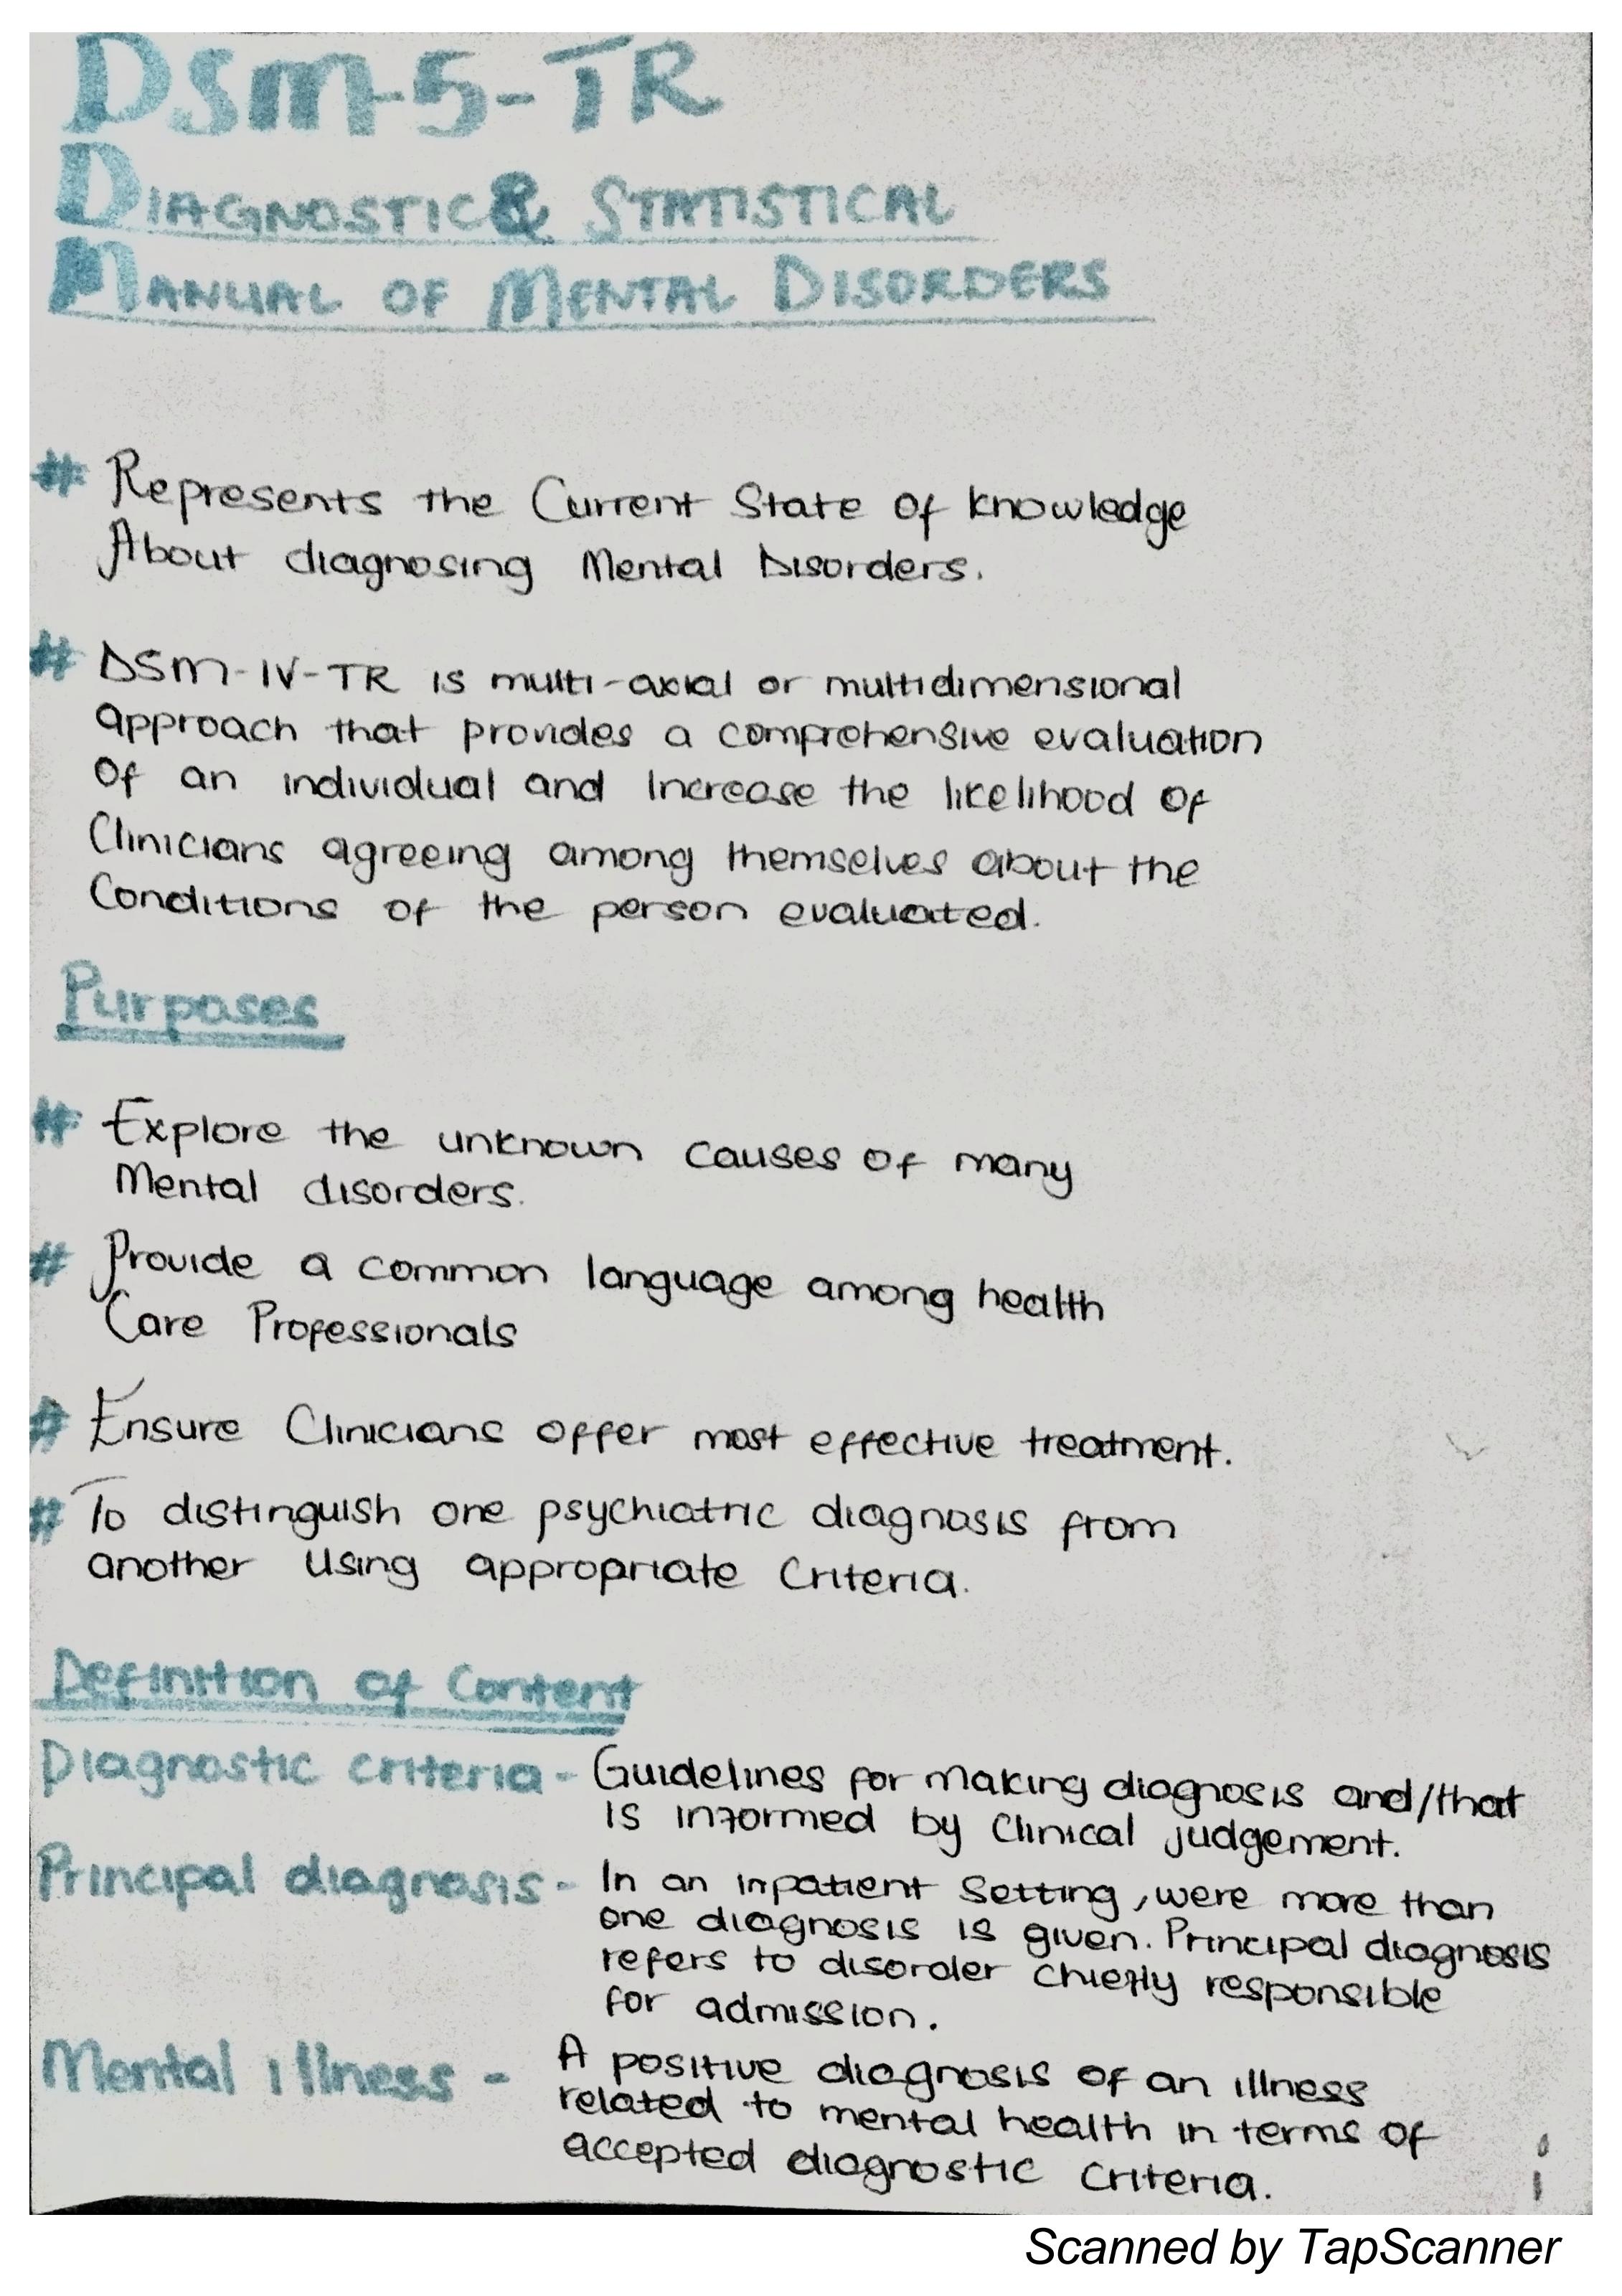 DSM-5-TR
DIAGNOSTIC & STATISTICAL
MANUAL OF MENTAL DISORDERS
# Represents the Current State of knowledge
About diagnosing Mental Disorders.
# DSM-IV-TR is multi-axial or multidimensional
approach that provides a comprehensive evaluation
Of an individual and Increase the likelihood of
Clinicians agreeing among themselves about the
Conditions of the person evaluated.
Purposes
# Explore the unknown causes of many
Mental disorders.
# Provide a common language among health
Care Professionals
# Ensure Clinicians offer most effective treatment.
# To distinguish one psychiatric diagnosis from
another Using appropriate Criteria.
Definition of Content
Diagnostic criteria - Guidelines for making diagnosis and/that
is informed by Clinical judgement.
Principal diagnosis - In an inpatient Setting, were more than
one diagnosis is given. Principal diagnosis
refers to disorder chiefly responsible
for admission.
Mental illness - A positive diagnosis of an illness
related to mental health in terms of
accepted diagnostic Criteria.
Scanned by TapScanner